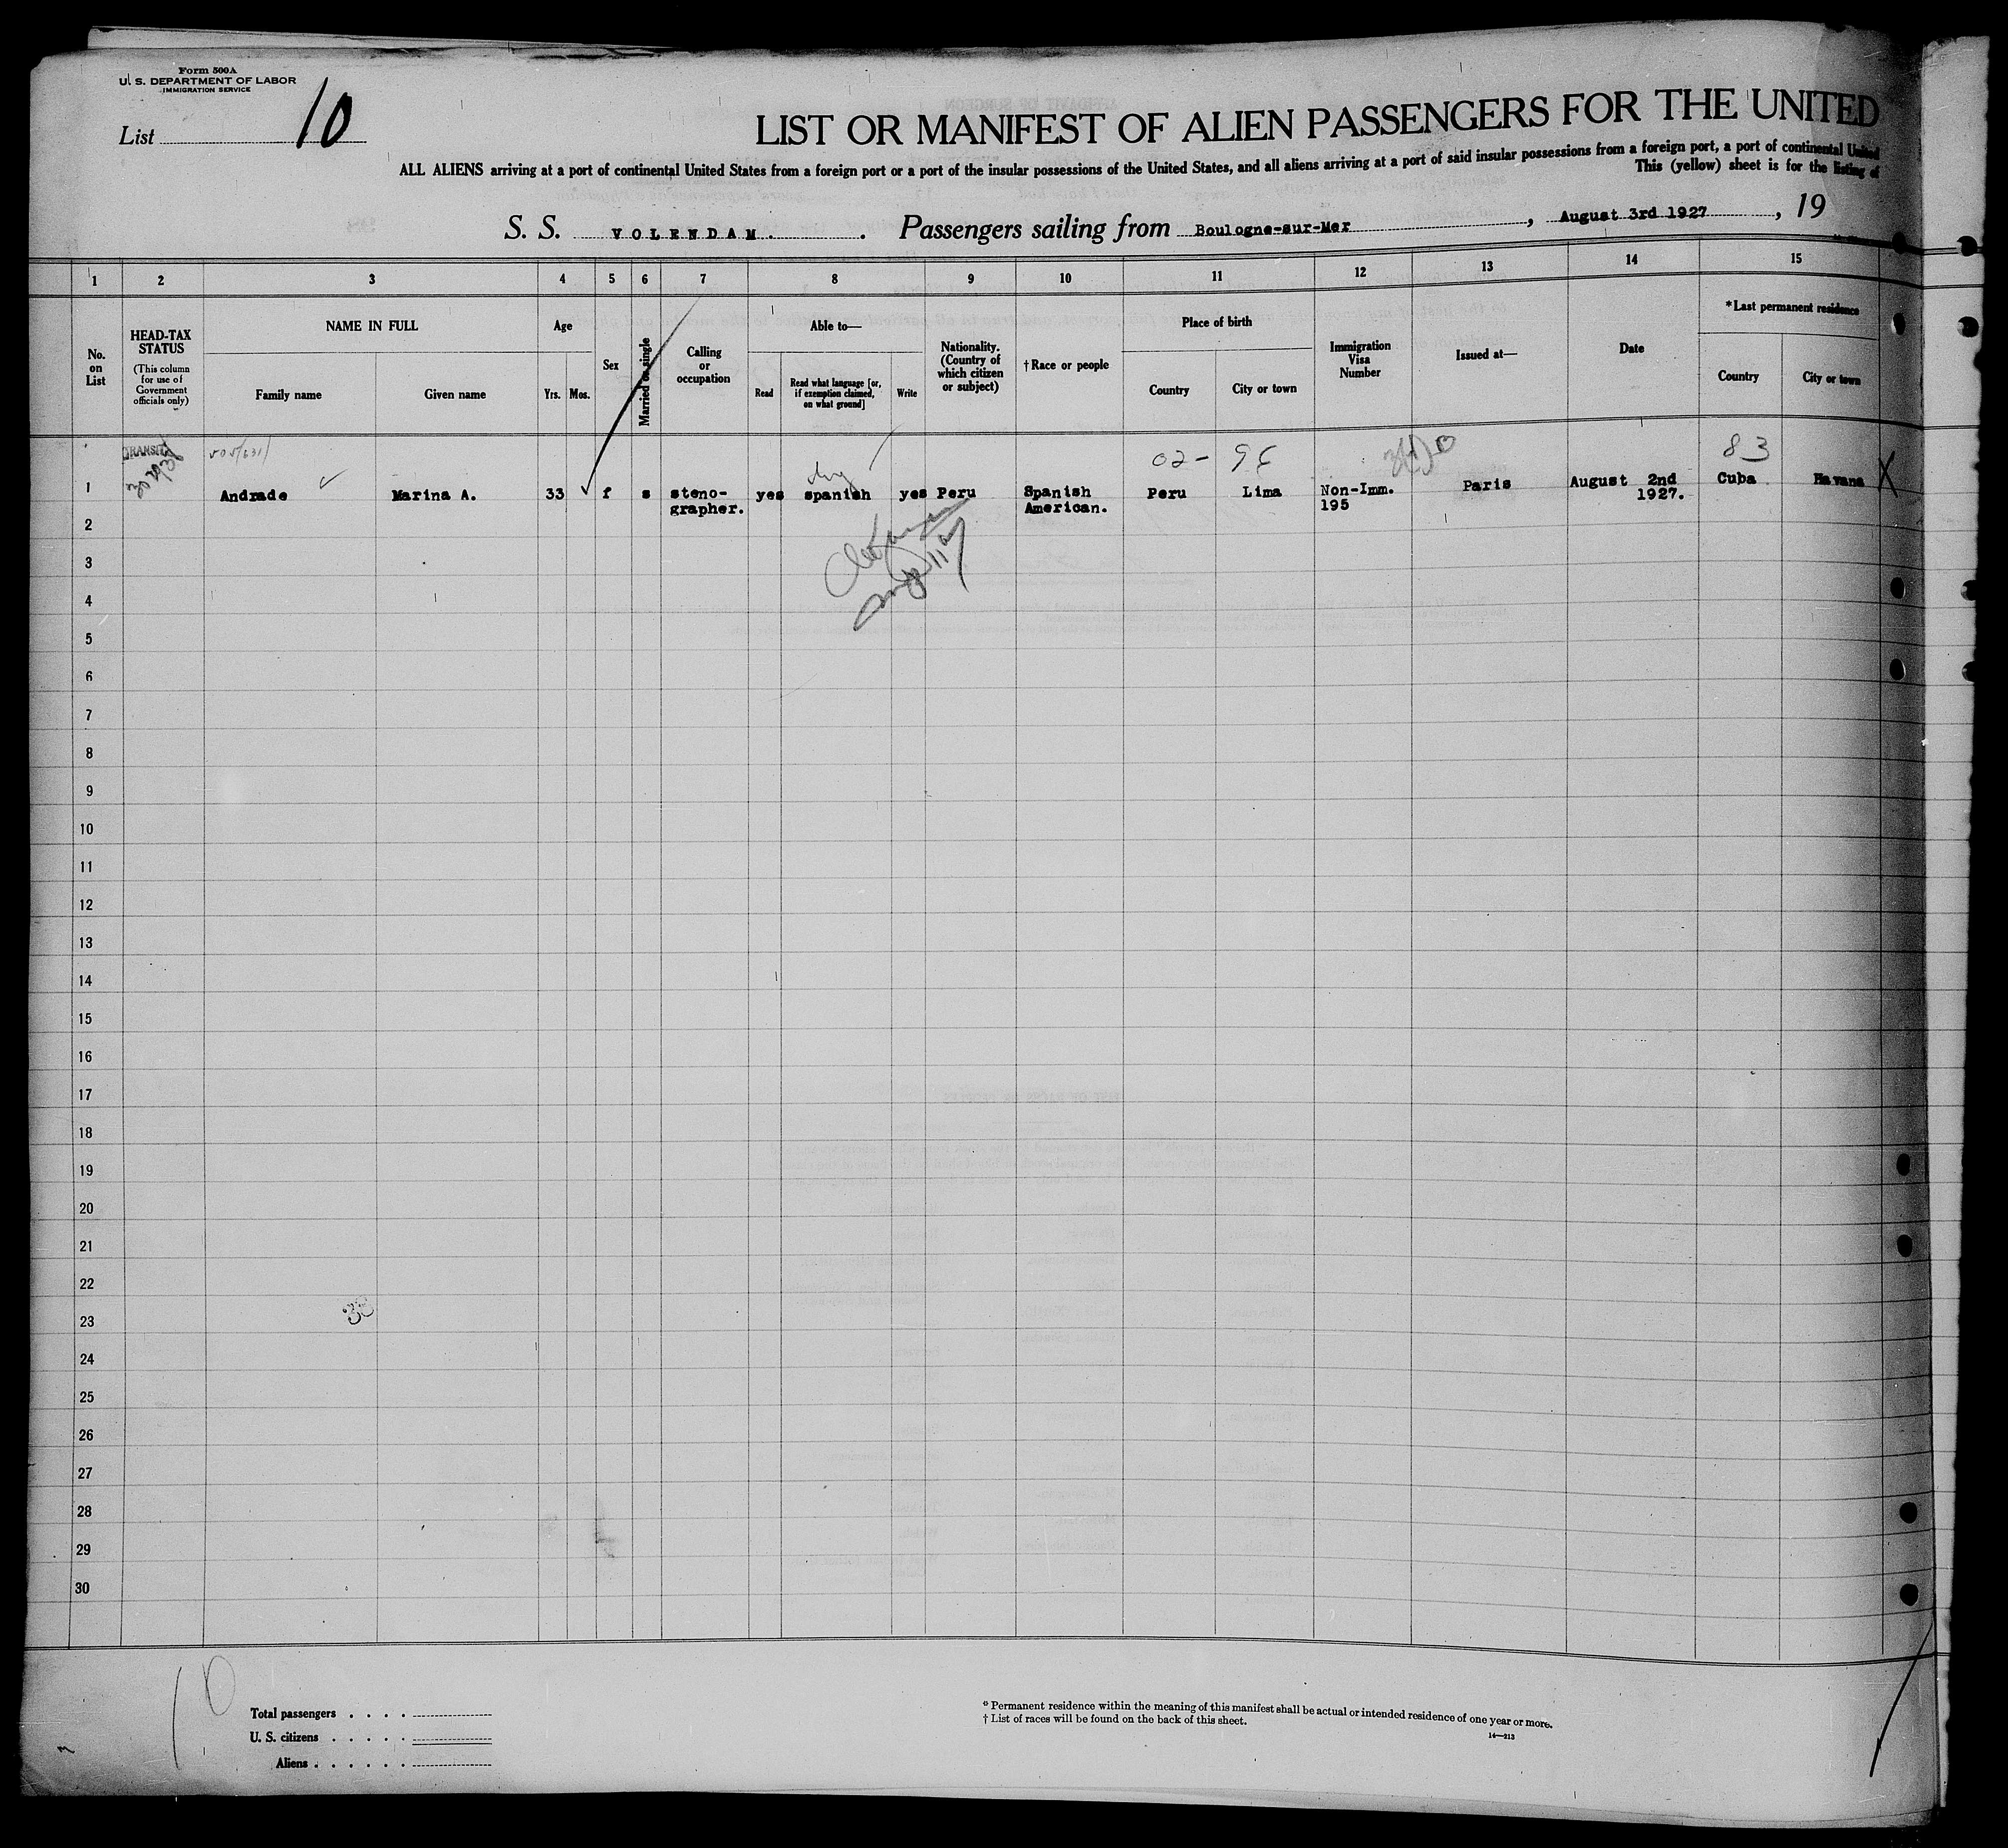 Form 500A
U. S. DEPARTMENT OF LABOR
IMMIGRATION SERVICE
List 10
LIST OR MANIFEST OF ALIEN PASSENGERS FOR THE UNITED
ALL ALIENS arriving at a port of continental United States from a foreign port or a port of the insular possessions of the United States, and all aliens arriving at a port of said insular possessions from a foreign port, a port of continental United
This (yellow) sheet is for the listing of
S. S. VOLENDAM. . Passengers sailing from Boulogne-sur-Mer, August 3rd 1927, 19
1 2 3 4 5 6 7 8 9 10 11 12 13 14 15
No. on List
HEAD-TAX STATUS
(This column for use of Government officials only)
NAME IN FULL
Family name
Given name
Age
Yrs.
Mos.
Sex
Married or single
Calling or occupation
Able to—
Read
Read what language [or, if exemption claimed, on what ground]
Write
Nationality. (Country of which citizen or subject)
†Race or people
Place of birth
Country
City or town
Immigration Visa Number
Issued at—
Date
*Last permanent residence
Country
City or town
TRANSIT
02- 83
1 Andrade Marina A. 33 f s steno- yes spanish yes Peru Spanish Peru Lima Non-Imm. Paris August 2nd Cuba Havana X
grapher. American. 195 1927.
2
3
4
5
6
7
8
9
10
11
12
13
14
15
16
17
18
19
20
21
22
23
24
25
26
27
28
29
30
38
10
Total passengers . . . .
U. S. citizens . . . . .
Aliens . . . . . .
* Permanent residence within the meaning of this manifest shall be actual or intended residence of one year or more.
† List of races will be found on the back of this sheet.
14—213